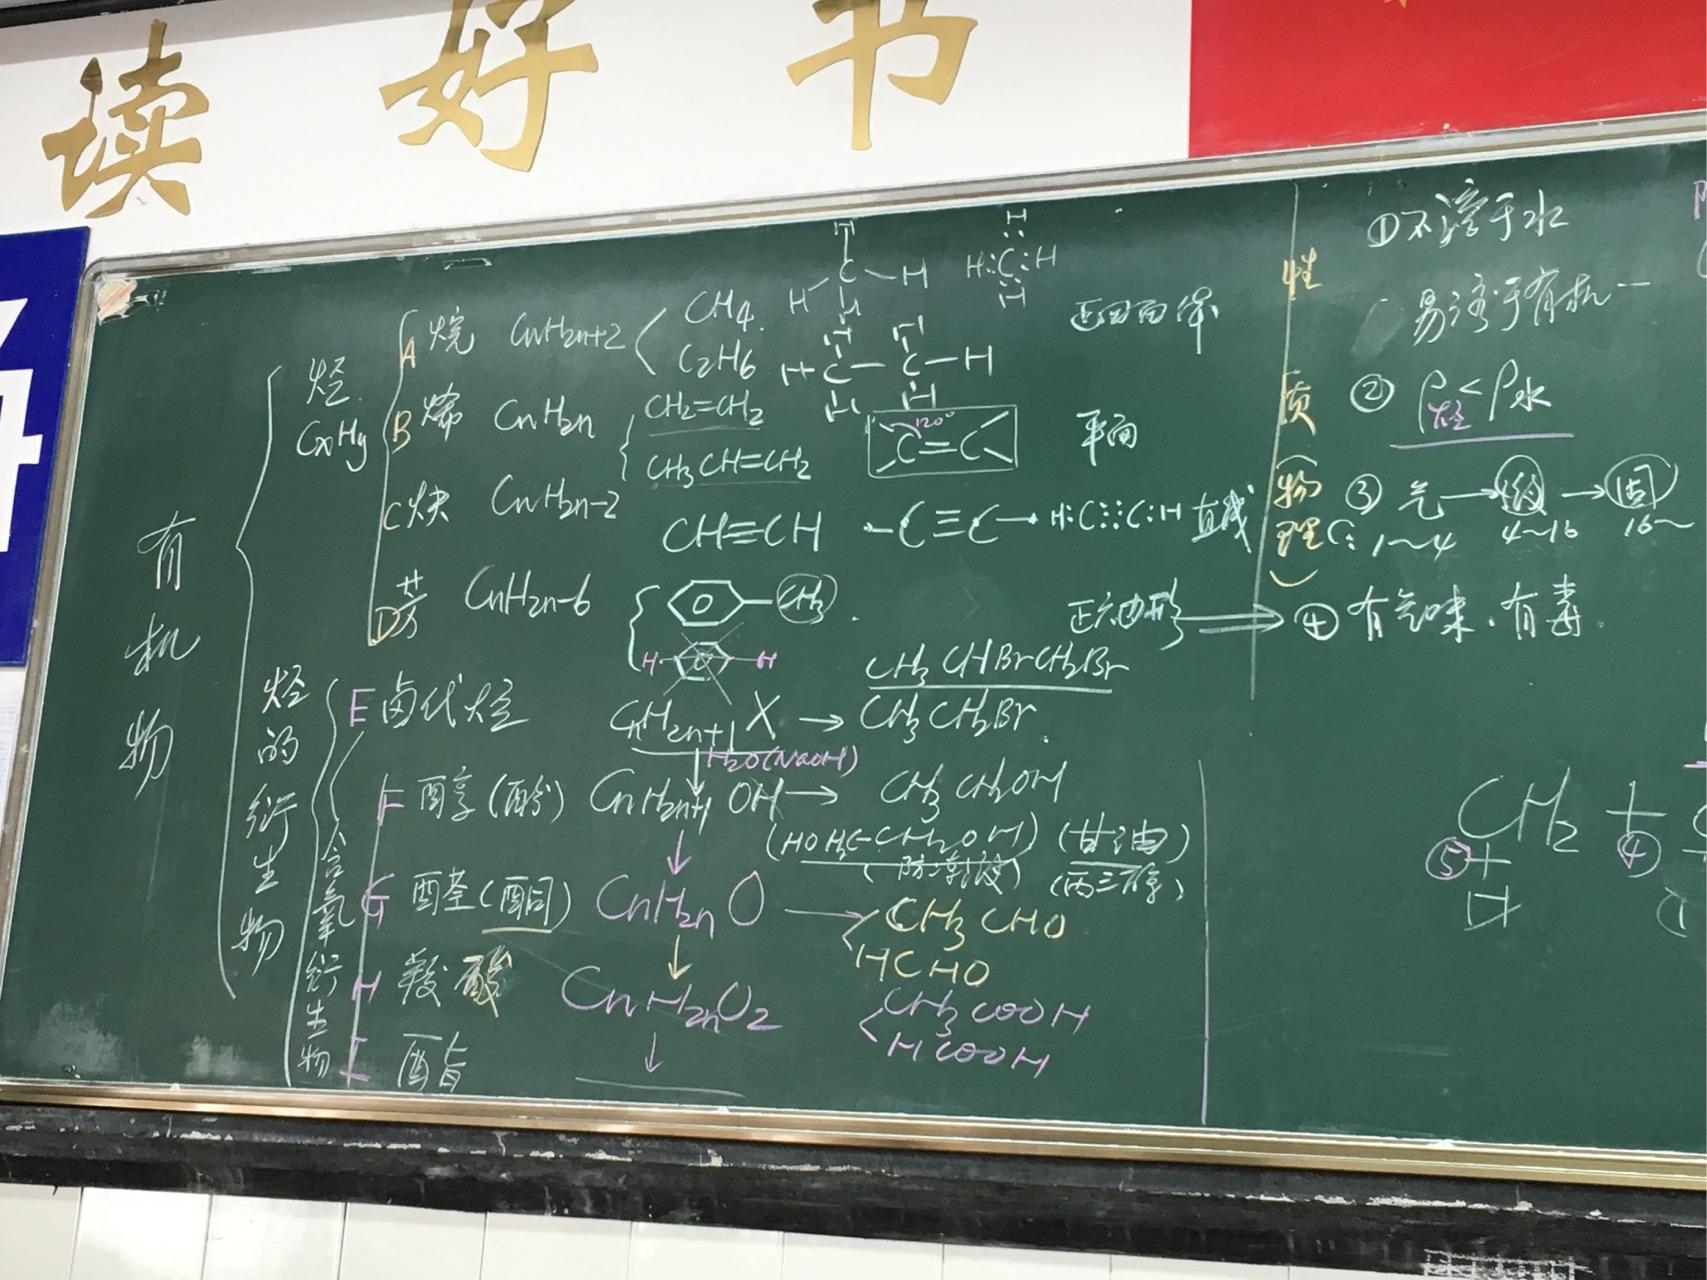 读好书
有机物
烃 CxHy
A 烷 CnH2n+2 CH4 C2H6 正四面体
B 烯 CnH2n CH2=CH2 CH3CH=CH2 120° C=C 平面
C 炔 CnH2n-2 CH≡CH -C≡C- H:C⋮⋮C:H 直线
D 芳 CnH2n-6 CH3 H H 正六边形
烃的衍生物
E 卤代烃 CnH2n+1X → CH3CH2Br
CH3CHBrCH2Br
H2O(NaOH)
含氧衍生物
F 醇(酚) CnH2n+1OH → CH3CH2OH
(HOH2C-CH2OH) (甘油)
(防冻液) (丙三醇)
G 醛(酮) CnH2nO → CH3CHO
HCHO
H 羧酸 CnH2nO2 CH3COOH
HCOOH
I 酯
性质(物理)
①不溶于水
易溶于有机
② ρ烃<ρ水
③ 气→液→固
C: 1~4 4~16 16~
④ 有气味.有毒.
CH2 +
⑤ + ④
H